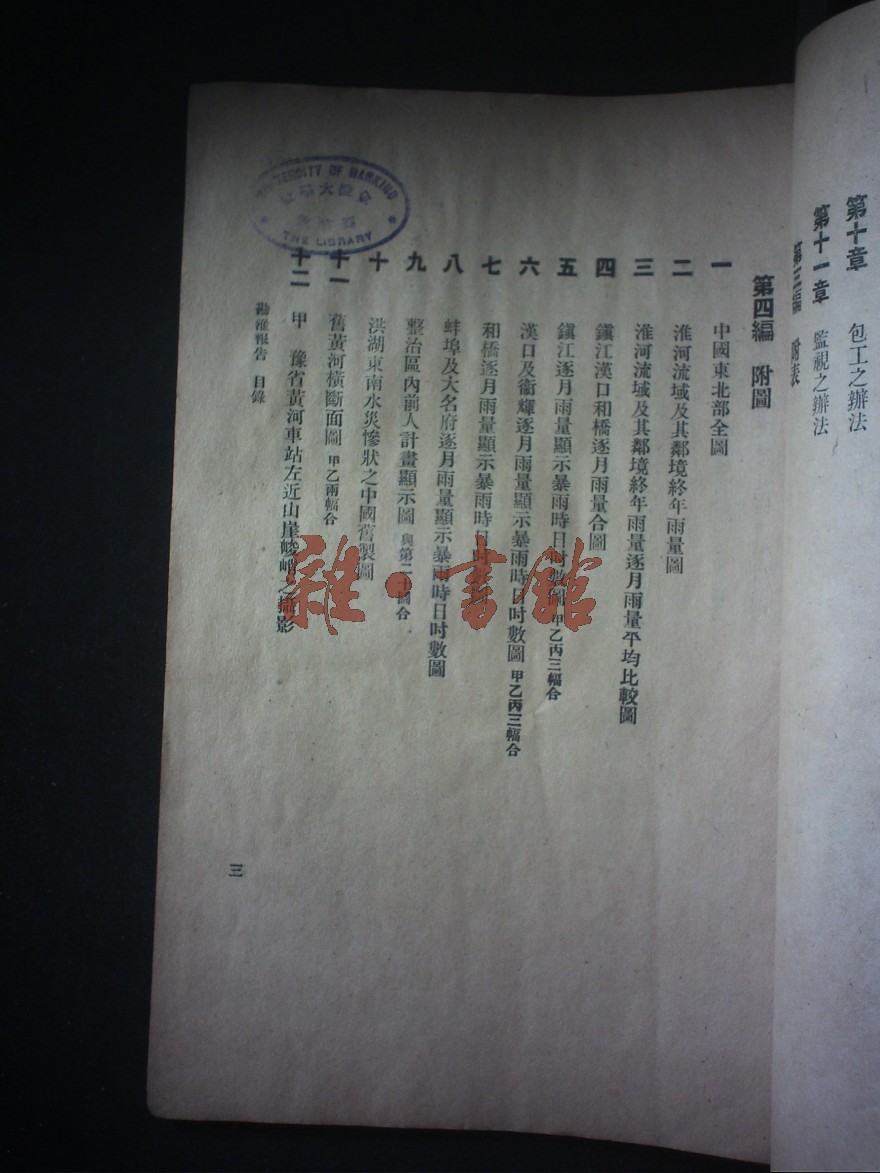 第十章　包工之辦法
第十一章　監視之辦法
第三編　附表
第四編　附圖
一　中國東北部全圖
二　淮河流域及其鄰境終年雨量圖
三　淮河流域及其鄰境終年雨量逐月雨量平均比較圖
四　鎭江漢口和橋逐月雨量合圖
五　鎭江逐月雨量顯示暴雨時日吋數圖　甲乙丙三幅合
六　漢口及衞輝逐月雨量顯示暴雨時日吋數圖　甲乙丙三幅合
七　和橋逐月雨量顯示暴雨時日吋數圖
八　蚌埠及大名府逐月雨量顯示暴雨時日吋數圖
九　整治區內前人計畫顯示圖　與第二十圖合
十　洪湖東南水災慘狀之中國舊製圖
十一　舊黃河橫斷面圖　甲乙兩幅合
十二　甲　豫省黃河車站左近山崖峻峭之攝影
勘淮報告　目錄
三
UNIVERSITY OF NANKING
THE LIBRARY
雜·書館